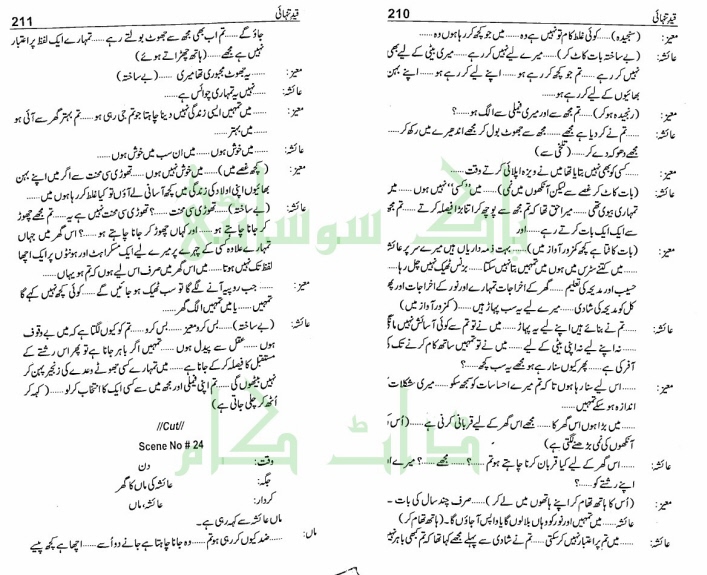 210
قیدِ تنہائی
معیز: (سنجیدہ)......کوئی غلط کام تو نہیں ہے وہ......میں جو کچھ کر رہا ہوں وہ......
عائشہ: (بے ساختہ بات کاٹ کر)......میرے لیے نہیں کر رہے......میری بیٹی کے لیے بھی
نہیں کر رہے......تم جو کچھ کر رہے ہو......اپنے لیے کر رہے ہو......اپنے بہن
بھائیوں کے لیے کر رہے ہو۔
معیز: (رنجیدہ ہو کر)......تم مجھ سے اور میری فیملی سے الگ ہو......؟
عائشہ: ......تم نے کر دیا ہے مجھے......مجھ سے جھوٹ بول کر مجھے اندھیرے میں رکھ کر......
مجھے دھوکہ دے کر......(تلخی سے)
معیز: ......کسی کو بھی نہیں بتایا تھا میں نے ویزہ اپلائی کرتے وقت......
عائشہ: (بات کاٹ کر غصے سے لیکن آنکھوں میں نمی)......میں ”کسی“ نہیں ہوں......میں
تمہاری بیوی تھی......میرا حق تھا کہ تم مجھ سے پوچھ کر اتنا بڑا فیصلہ کرتے......تم مجھ
سے ایک ایک بات کرتے رہے......اور
معیز: (بات کاٹتا ہے کچھ کمزور آواز میں)......بہت ذمہ داریاں ہیں میرے سر پر عائشہ
......میں کتنے سٹرس میں ہوں میں تمہیں بتا نہیں سکتا......بزنس ٹھیک نہیں چل رہا......
حسیب اور مدیحہ کی تعلیم......گھر کے اخراجات تمہارے اور نور کے اخراجات اور پھر
کل کو مدیحہ کی شادی......میرے لیے یہ سب پہاڑ ہیں......(کمزور آواز میں)
عائشہ: ......تم نے بنائے ہیں اپنے لیے یہ پہاڑ......میں نے تو تم سے کوئی آسائش نہیں مانگی
نہ اپنے لیے نہ اپنی بیٹی کے لیے......میں نے تو تمہیں ساتھ کام کرنے تک کی
آفر کی ہے......پھر کیوں سنا رہے ہو مجھے یہ سب کچھ......؟
معیز: ......اس لیے سنا رہا ہوں تا کہ تم میرے احساسات کو سمجھ سکو......میری مشکلات کا
اندازہ ہو سکے تمہیں......
......میں بڑا ہوں اس گھر کا......مجھے اس گھر کے لیے قربانی کرنی ہے......(اُس کی
آنکھوں کی نمی بڑھنے لگتی ہے)
عائشہ: ......اس گھر کے لیے کیا قربان کرنا چاہتے ہو تم......؟......مجھے......؟ میرے اور
اپنے رشتے کو......؟
معیز: (اُس کا ہاتھ تھام کر اپنے ہاتھوں میں لے کر)......صرف چند سال کی بات ہے
عائشہ......میں تمہیں اور نور کو وہاں بلا لوں گا یا واپس آ جاؤں گا۔ (ہاتھ تھام کر)
عائشہ: ......میں تم پر اعتبار نہیں کر سکتی......تم نے شادی سے پہلے مجھے کہا تھا کہ تم کبھی باہر نہیں
قیدِ تنہائی
211
جاؤ گے......تم اب بھی مجھ سے جھوٹ بولتے رہے......تمہارے ایک لفظ پر اعتبار
نہیں ہے مجھے......(ہاتھ چھڑاتے ہوئے)
معیز: ......یہ جھوٹ مجبوری تھا میری......(بے ساختہ)
عائشہ: ......نہیں یہ تمہاری چوائس ہے......
معیز: ......میں تمہیں ایسی زندگی نہیں دینا چاہتا جو تم جی رہی ہو......تم بہتر گھر سے آئی ہو
......میں بہتر......
عائشہ: ......میں خوش ہوں......میں ان سب میں خوش ہوں......
معیز: (کچھ غصے میں)......میں خوش نہیں ہوں......تھوڑی سی محنت سے اگر میں اپنے بہن
بھائیوں اپنی اولاد کی زندگی میں کچھ آسانی لے آؤں تو کیا غلط کر رہا ہوں میں......
عائشہ: (بے ساختہ)......تھوڑی سی محنت......؟ تھوڑی سی محنت نہیں ہے یہ......تم مجھے چھوڑ
کر جانا چاہتے ہو......اور کہاں چھوڑ کر جانا چاہتے ہو......؟ اس گھر میں جہاں
تمہارے علاوہ کسی کے چہرے پر میرے لیے ایک مسکراہٹ اور ہونٹوں پر ایک اچھا
لفظ تک نہیں ہوتا......میں اس گھر میں صرف اس لیے ہوں کہ تم ہو یہاں......
معیز: ......جب روپیہ آنے لگے گا تو سب ٹھیک ہو جائیں گے......کوئی کچھ نہیں کہے گا
تمہیں......یا میں تمہیں الگ گھر......
عائشہ: (بے ساختہ)......بس کرو معیز......بس کرو......تم کو کیوں لگتا ہے کہ میں بے وقوف
ہوں......عقل سے پیدل ہوں......تمہیں اگر باہر جانا ہے تو پھر اس رشتے کے
مستقبل کا فیصلہ کر کے جانا ہے......میں تمہارے کسی جھوٹے وعدے کی زنجیر پہن کر
نہیں بیٹھوں گی......تم اپنی فیملی اور مجھ میں سے کسی ایک کا انتخاب کر لو......(کہہ کر
اُٹھ کر چلی جاتی ہے)
//Cut//
Scene No # 24
وقت: دن
جگہ: عائشہ کی ماں کا گھر
کردار: عائشہ، ماں
ماں عائشہ سے کہہ رہی ہے۔
ماں: ......ضد کیوں کر رہی ہو تم......وہ جانا چاہتا ہے جانے دو اُسے......اچھا ہے کچھ پیسے
پاک سوسائٹی
ڈاٹ کام